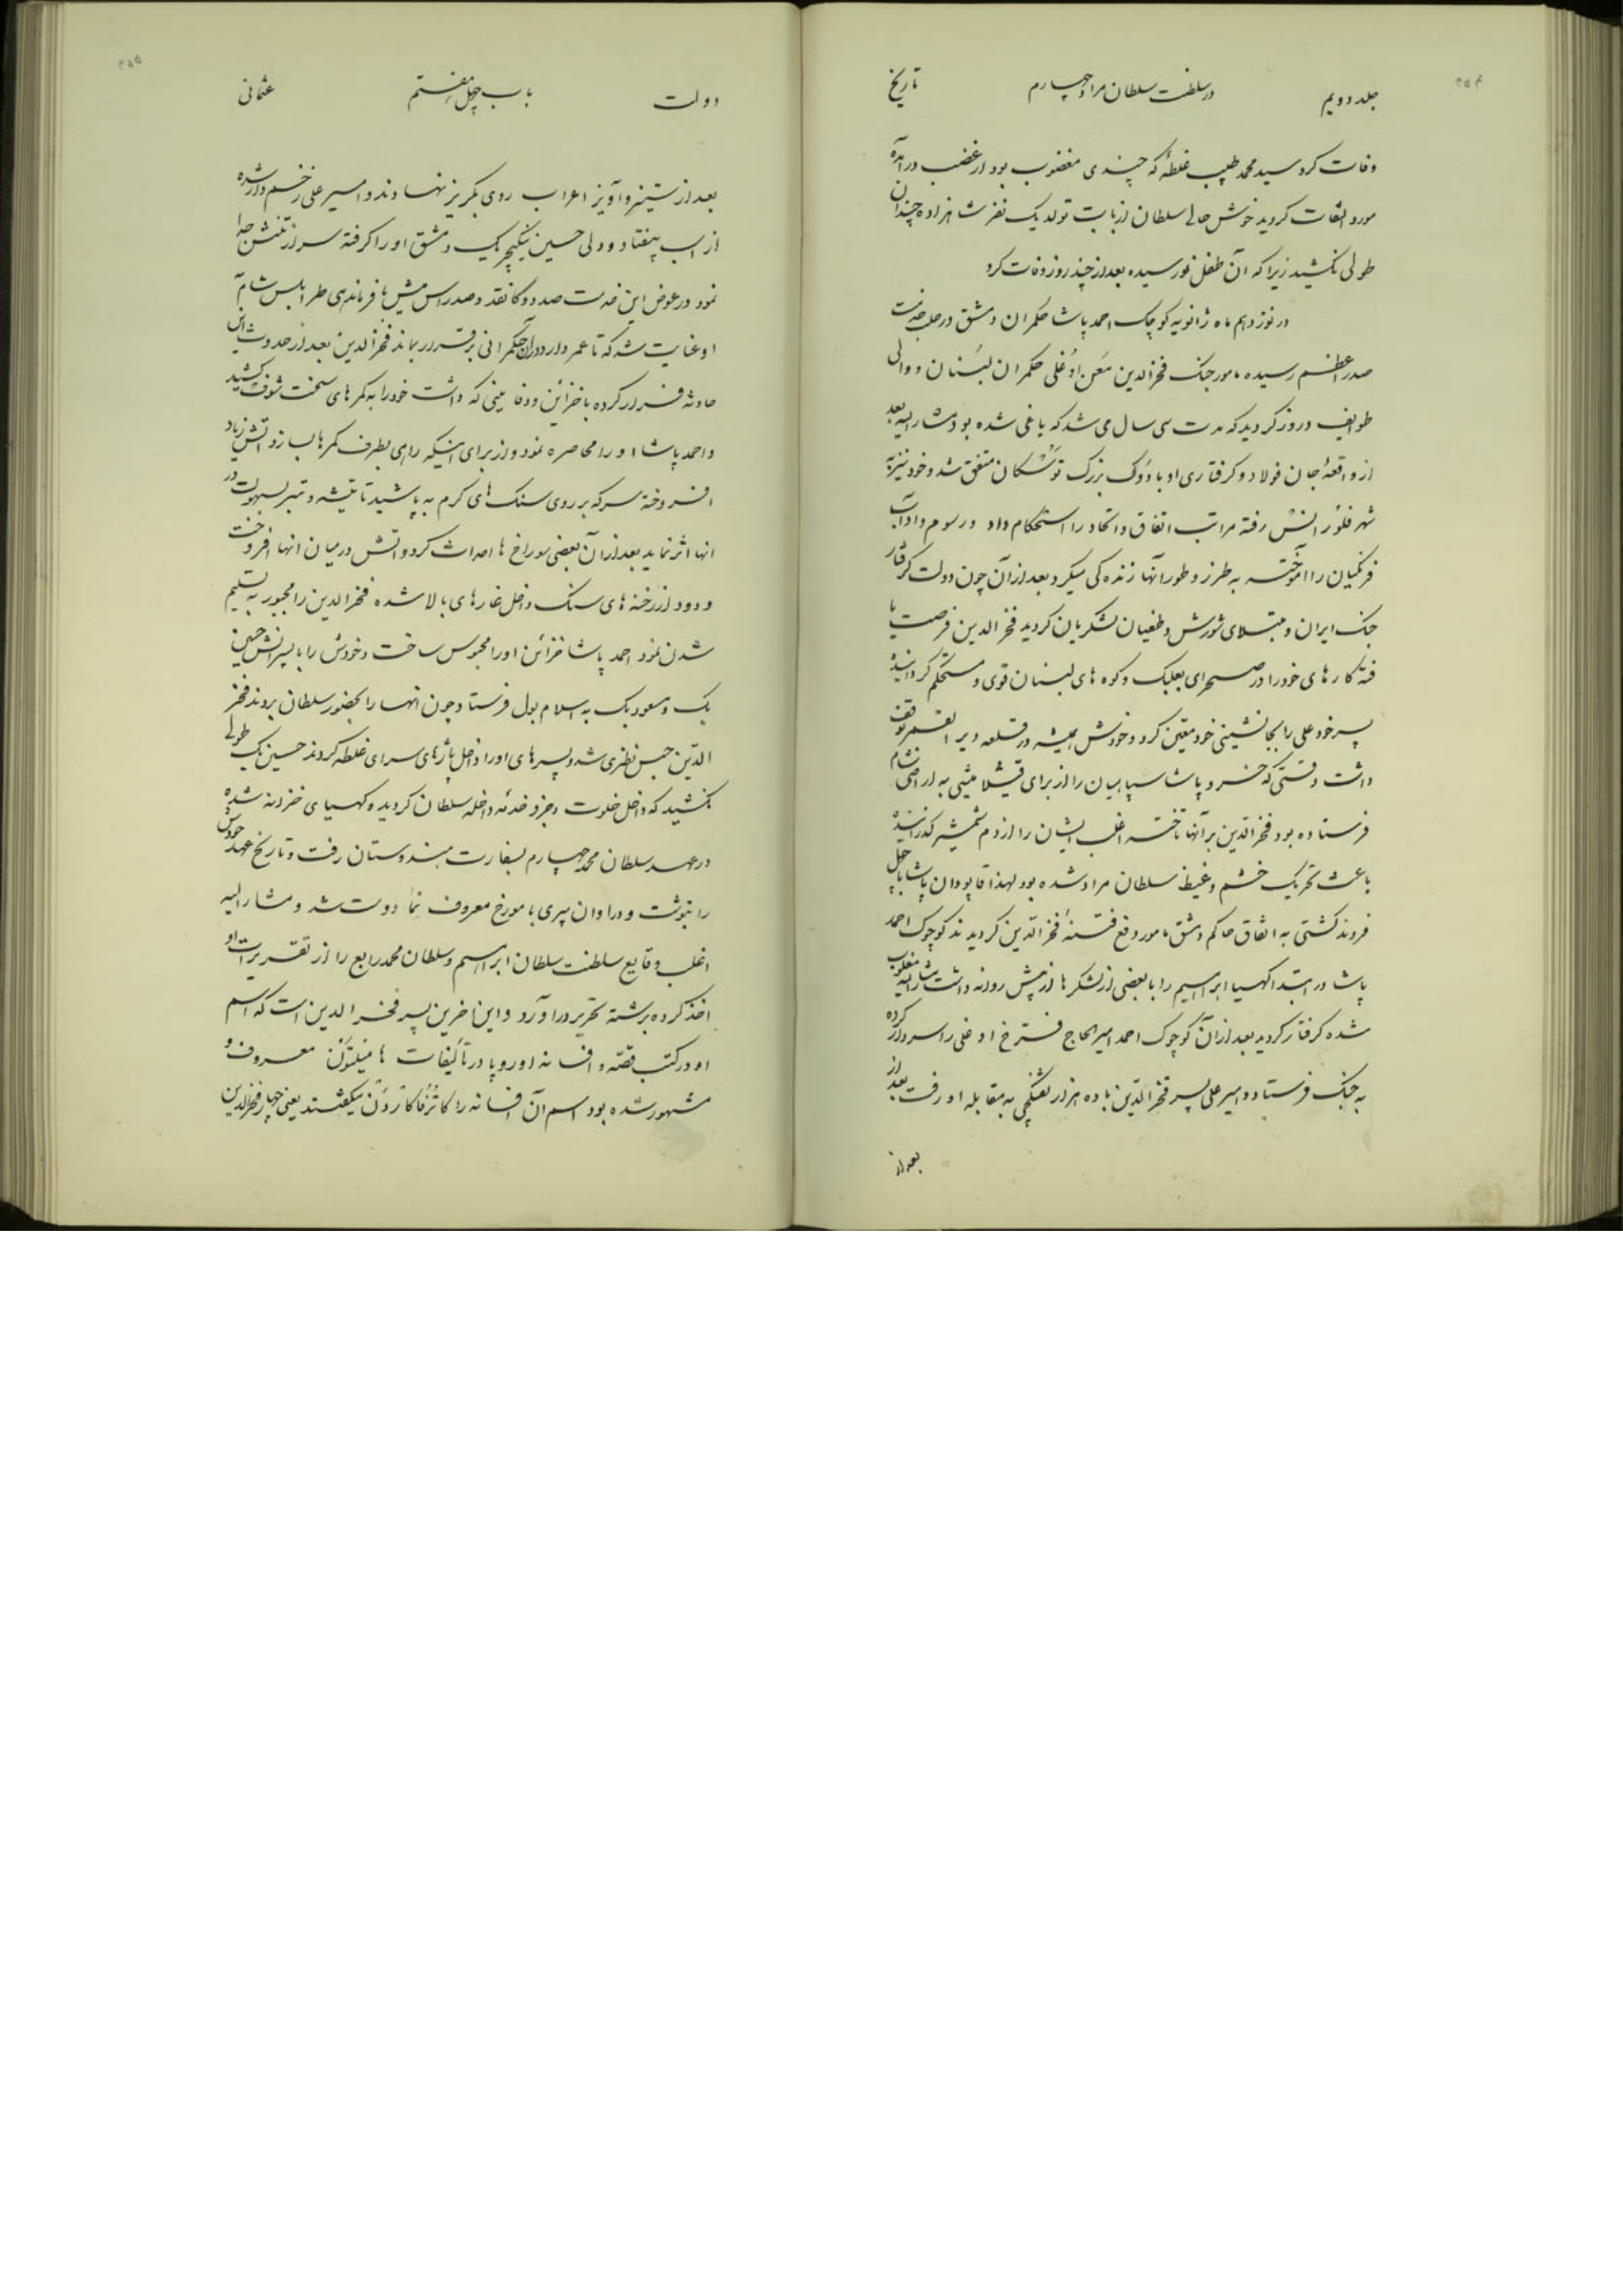 ۴۵۴
جلد دویم در سلطنت سلطان مراد چهارم تاریخ
وفات کرد سید محمد طبیب غلطهٔ که چندی مغضوب بود از غضب درآمده
مورد التفات کردید خوش حالی سلطان از بابت تولد یک نفر شاهزاده چندان
طولی نکشید زیرا که آن طفل نورسیده بعد از چند روز وفات کرد
در نوزدهم ماه ژانویه کوچک احمد پاشا حکمران دمشق در حلب خدمت
صدراعظم رسیده مامور جنک فخرالدین معن اوغلی حکمران لبنان و والی
طوایف دروز کردید که مدت سی سال می شد که یاغی شده بود مشارالیه بعد
از واقعهٔ جان فولاد و کرفتاری او با دوک بزرک توسکان متفق شد و خود نیز به
شهر فلورانس رفته مراتب اتفاق و اتحاد را استحکام داد و رسوم و اداب
فرنکیان را آموخته به طرز و طور آنها زنده کی میکرد بعد از آن چون دولت کرفتار
جنک ایران و مبتلای شورش و طغیان لشکریان کردید فخرالدین فرصت یا
فته کارهای خود را در صحرای بعلبک و کوه های لبنان قوی و مستحکم کردانیده
پسر خود علی را بجانشینی خود معین کرد و خودش همیشه در قلعه دیرالقمر توقف
داشت وقتی که خسرو پاشا سپاهیان را از برای قشلامیشی به اراضی شام
فرستاده بود فخرالدین بر آنها تاخته اغلب ایشان را از دم شمشیر کذرانیده
باعث تحریک خشم و غیظ سلطان مراد شده بود لهذا قاپودان پاشا با چهل
فروند کشتی به اتفاق حاکم دمشق مامور دفع فتنهٔ فخرالدین کردیدند کوچوک احمد
پاشا در ابتدا کهیا ابراهیم را با بعضی از لشکرها از پیش روانه داشت مشارالیه مغلوب
شده کرفتار کردید بعد از آن کوچوک احمد امیرالحاج فرخ اوغلی را سردار کرده
به جنک فرستاد و امیر علی پسر فخرالدین با ده هزار تفنکچی به مقابله او رفت بعد از
بعد از
۴۵۵
دولت باب چهل و هفتم عثمانی
بعد از ستیز و آویز اعراب روی بکریز نهادند و امیر علی زخم دار شده
از اسب بیفتاد و ولی حسین ینکیچر بیک دمشق او را کرفته سر از تنش جدا
نمود در عوض این خدمت صد دوکا نقد و صد راس میش با فرماندهی طرابلس شام به
او عنایت شد که تا عمر دارد در آن حکمرانی برقرار بماند فخرالدین بعد از حدوث این
حادثه فرار کرده با خزائن و دفاینی که داشت خود را به کمرهای سخت شوف کشید
و احمد پاشا او را محاصره نمود و از برای اینکه راهی بطرف کمرها بسازد آتش زیاد
افروخته سرکه بر روی سنک های کرم به پاشید تا تیشه و تبر بسهولت در
انها اثر نماید بعد از آن بعضی سوراخ ها احداث کرد و اتش در میان انها افروخت
و دود از رخنه های سنک داخل غارهای بالا شده فخرالدین را مجبور به تسلیم
شدن نمود احمد پاشا خزائن او را محبوس ساخت و خودش را با پسرانش حسین
بیک و مسعود بیک به اسلامبول فرستاد چون انها را بحضور سلطان بردند فخر
الدین حبس نظری شد و پسرهای او را داخل پاژهای سرای غلطه کردند حسین بیک طولی
نکشید که داخل خلوت و جزو خدمهٔ داخله سلطان کردید و کهیای خزانه شده
در عهد سلطان محمد چهارم بسفارت هندوستان رفت و تاریخ عهد خودش
را بنوشت و در اوان پیری با مورخ معروف نما دوست شد و مشارالیه
اغلب وقایع سلطنت سلطان ابراهیم و سلطان محمد رابع را از تقریرات او
اخذ کرده برشته تحریر درآورد و این اخرین پسر فخرالدین است که اسم
او در کتب قصه و افسانه اوروپا در تألیفات هامیلتون معروف و
مشهور شده بود اسم آن افسانه را کاترفاکاردن میکفتند یعنی چهار فخرالدین